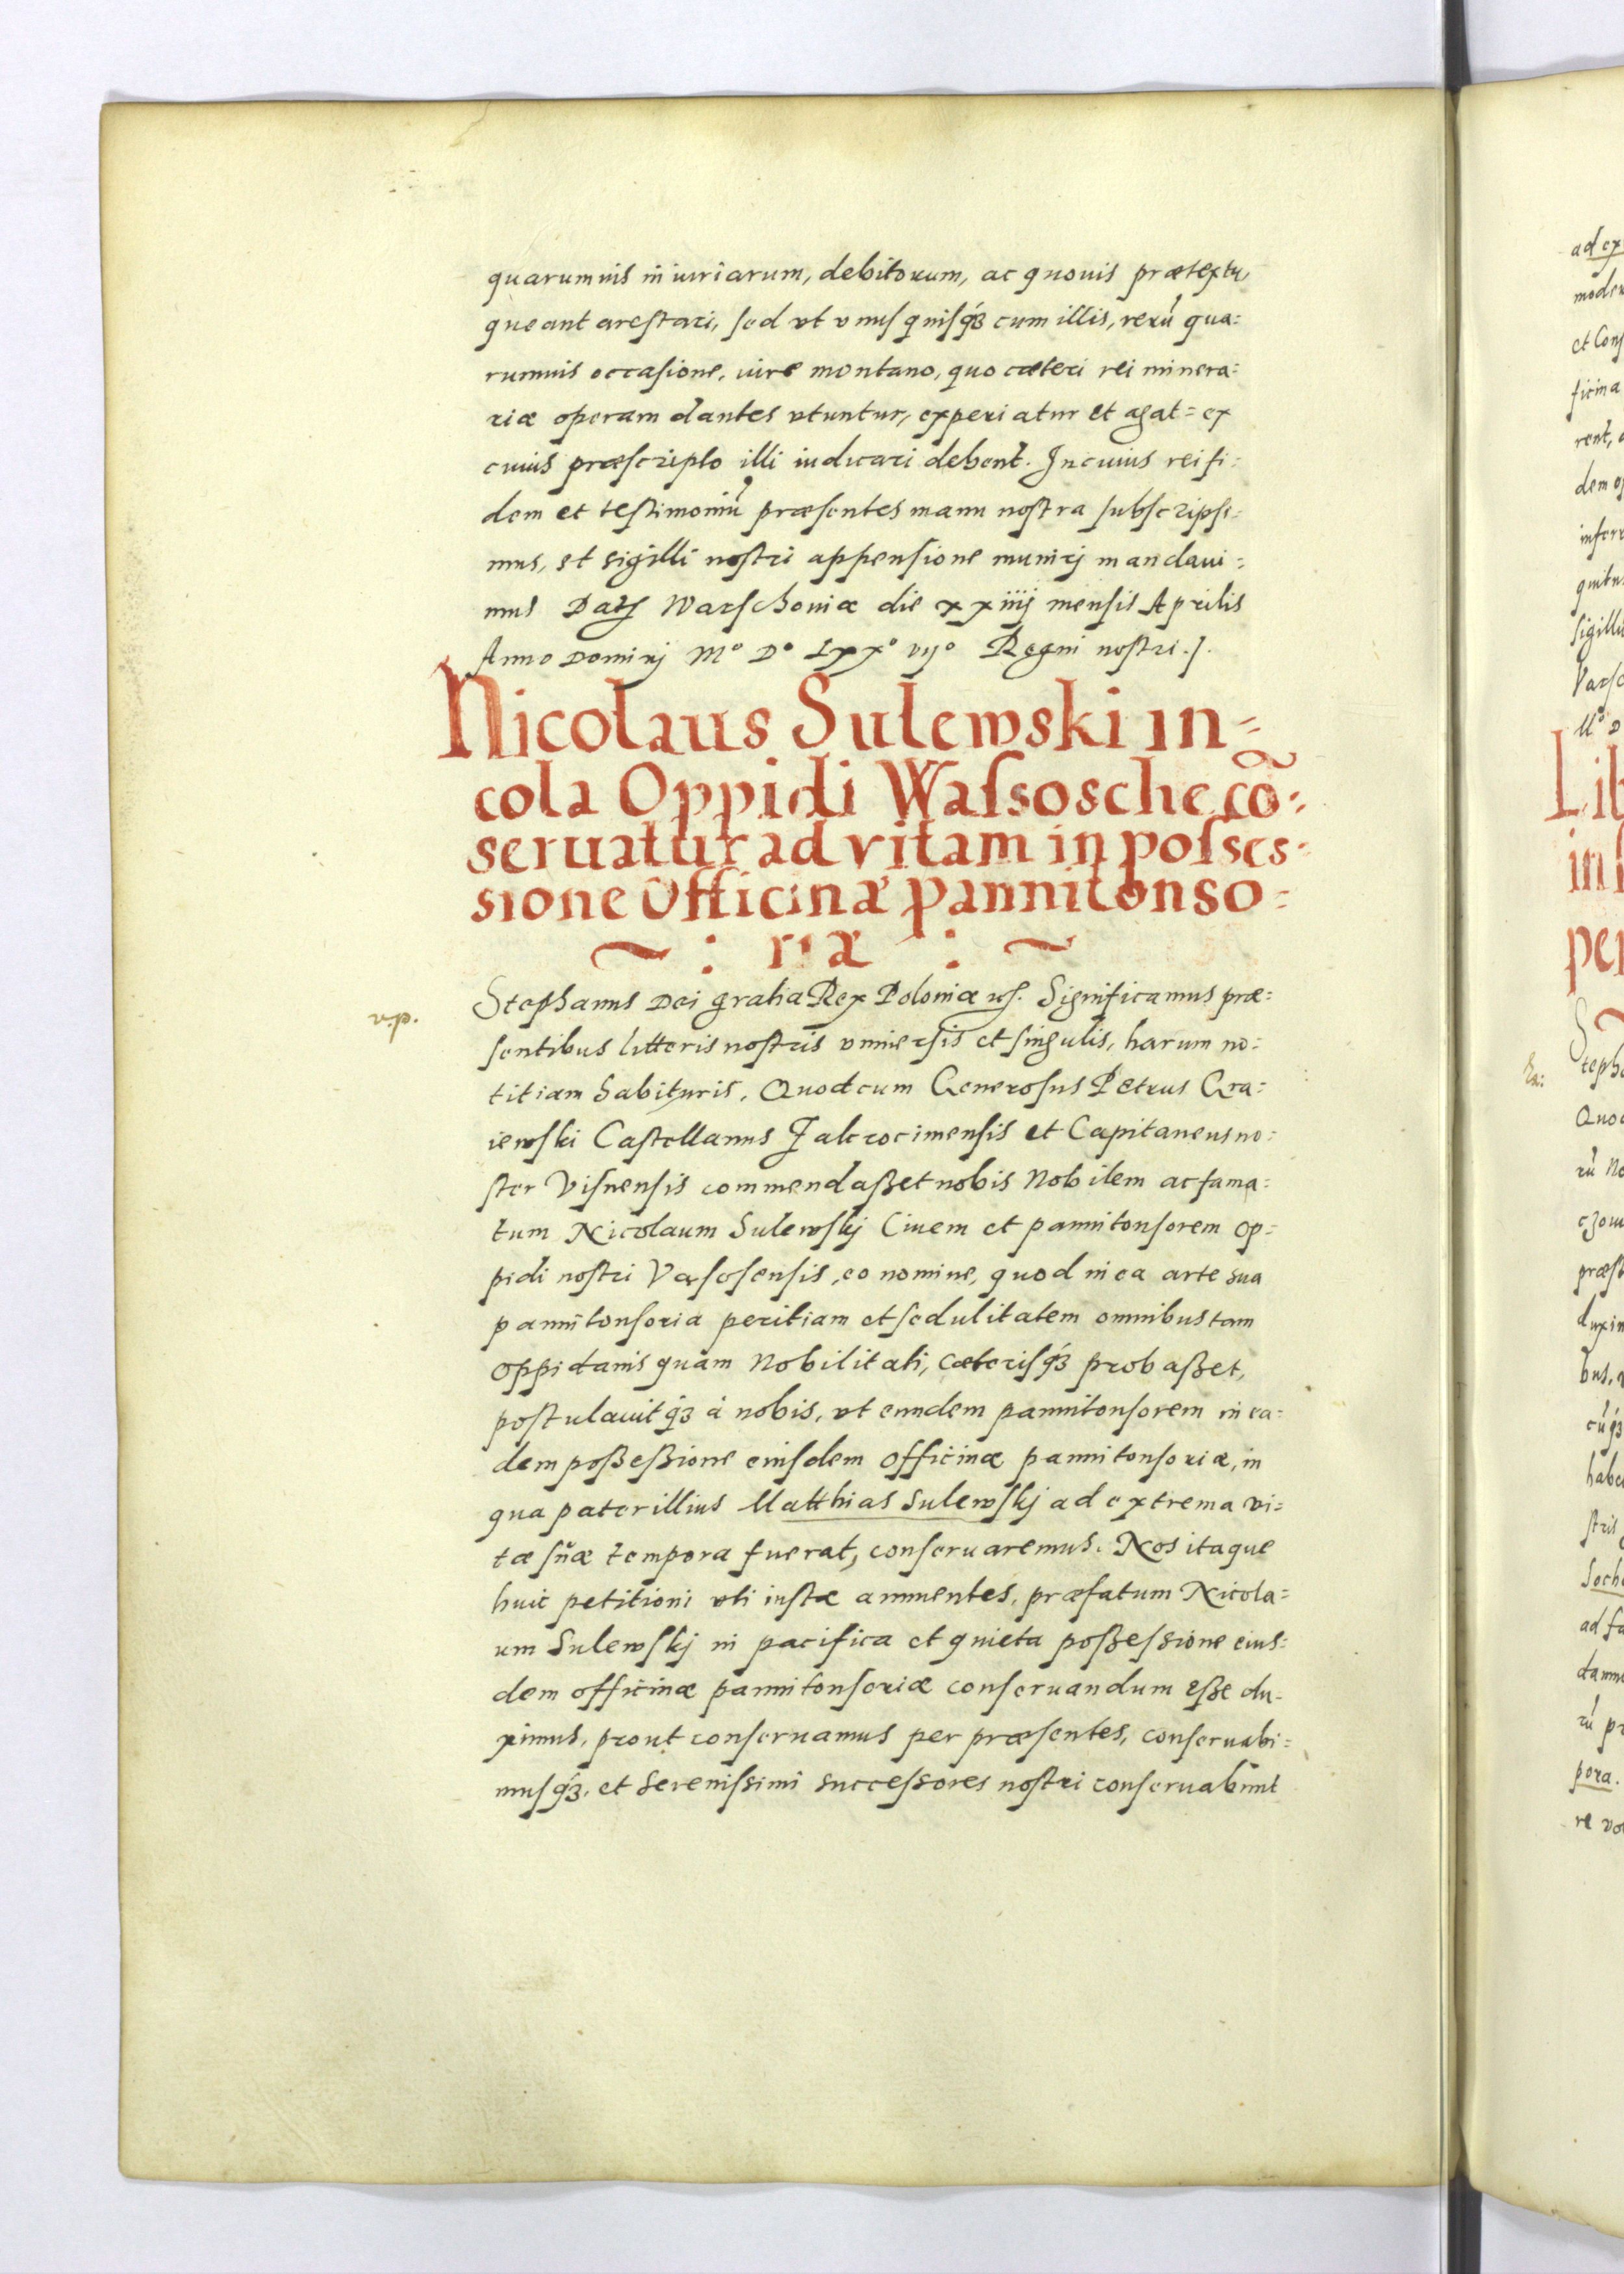 quarumuis iniuriarum, debitorum, ac quouis prætextu,
queant arestari, sed vt vnusquisq́ꝫ cum illis, rerū qua=
rumuis occasione, iure montano, quo cæteri rei minera=
riæ operam dantes vtuntur, experiatur et agat= ex
cuius præscripto illi iudicari debent. In cuius rei fi=
dem et testimoniū præsentes manu nostra subscripsi=
mus, et sigilli nostri appensione munirj mandaui=
mus Datʒ Warschouiæ die xxiiij mensis Aprilis
Anno Dominj Mº Dº Lxxº vijº Regni nostri .j.
Nicolaus Sulewski in=
cola Oppidi Wassosche cō=
seruatur ad vitam in posses=
sione Officinæ pannitonso=
~ : riæ : ~
v.p.
Stephanus Dei gratia Rex Poloniæ etc. Significamus præ=
sentibus litteris nostris vniuersis et singulis, harum no=
titiam habituris, Quod cum Generosus Petrus Gra=
iewski Castellanus Zakrocimensis et Capitaneus no=
ster Visnensis commendaßet nobis Nobilem ac fama=
tum Nicolaum Sulewskj Ciuem et pannitonsorem op=
pidi nostri Vassosensis, eo nomine, quod in ea arte sua
pannitonsoria peritiam et sedulitatem omnibus tam
oppidanis quam Nobilitati, cæterisq́ꝫ probaßet,
postulauitq́ꝫ à nobis, vt eundem pannitonsorem in ea=
dem poßeßione eiusdem officinæ pannitonsoriæ, in
qua pater illius Matthias Sulewskj ad extrema vi=
tæ suæ tempora fuerat, conseruaremus. Nos itaque
huic petitioni vti iustæ annuentes, præfatum Nicola=
um Sulewskj in pacifica et quieta poßessione eius=
dem officinæ pannitonsoriæ conseruandum eße du=
ximus, prout conseruamus per præsentes, conseruabi=
musq́ꝫ, et Serenissimi successores nostri conseruabunt